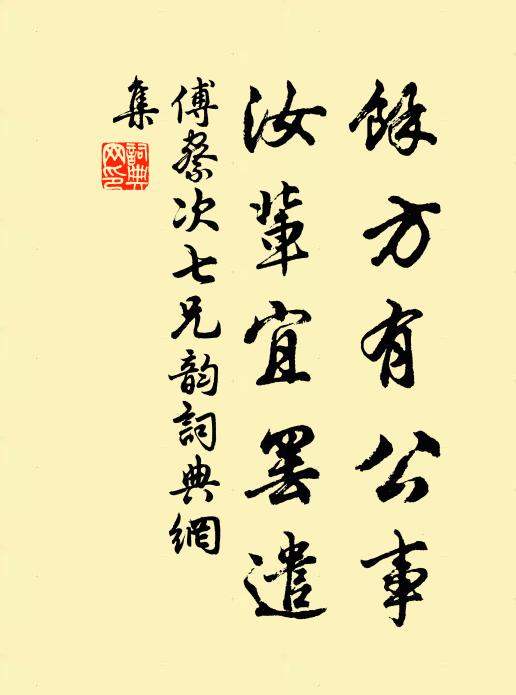 餘方有公事
汝輩宜罷遣
傅察次七兄韵詞典網
集
詞典網印